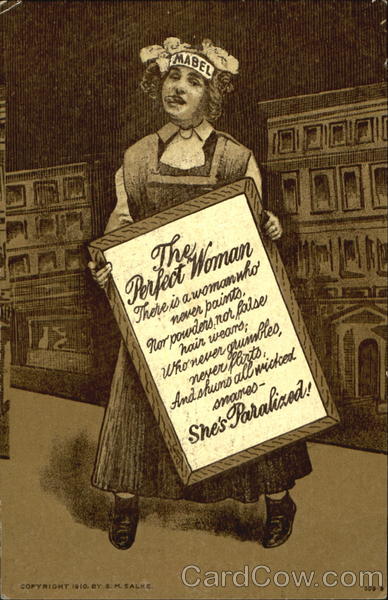 MABEL
The
Perfect Woman
There is a woman who
never paints,
Nor powders, nor false
hair wears;
Who never grumbles,
never flirts,
And shuns all wicked
snares—
She's Paralized!
COPYRIGHT 1910, BY S. M. SALKE.
CardCow.com